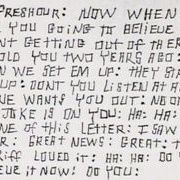 PRESHOUR: NOW WHEN
YOU GOING TO BELIEVE
NT GETTING OUT OF THER
OLD YOU TWO YEARS AGO:
N WE SET EM UP: THEY
UP: DONT YOU LISTEN AT
NE WANTS YOU OUT: NO
JOKE IS ON YOU: HA: HA:
NE OF THIS LETTER: I SAW
R: GREAT NEWS: GREAT:
RIFF LOVED IT: HA: HA: DO
EUE IT NOW: DO YOU: